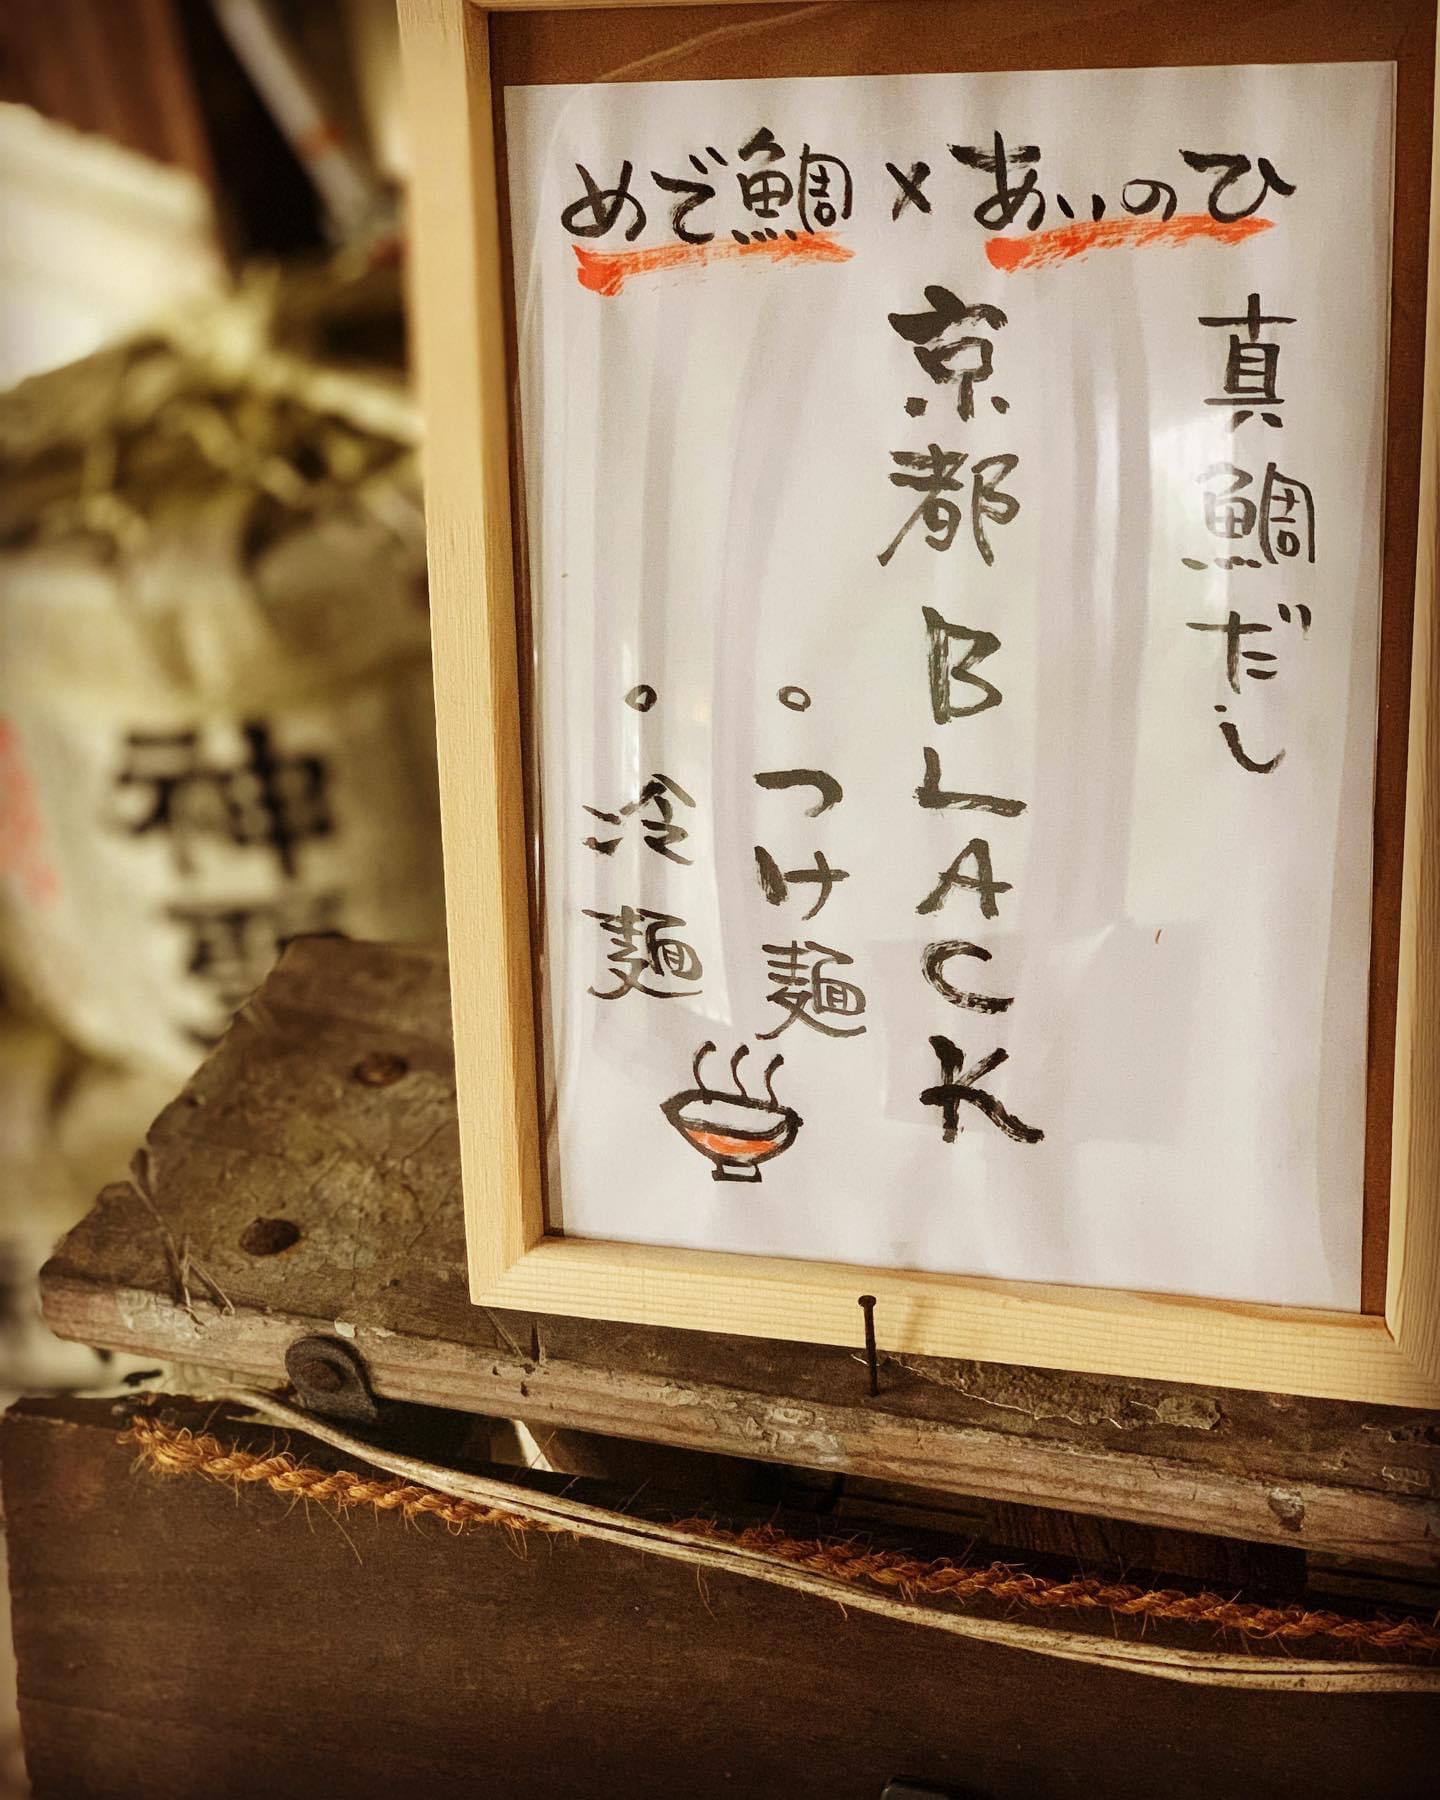 めで鯛×あいのひ
真鯛だし
京都BLACK
。つけ麺
。冷麺
神